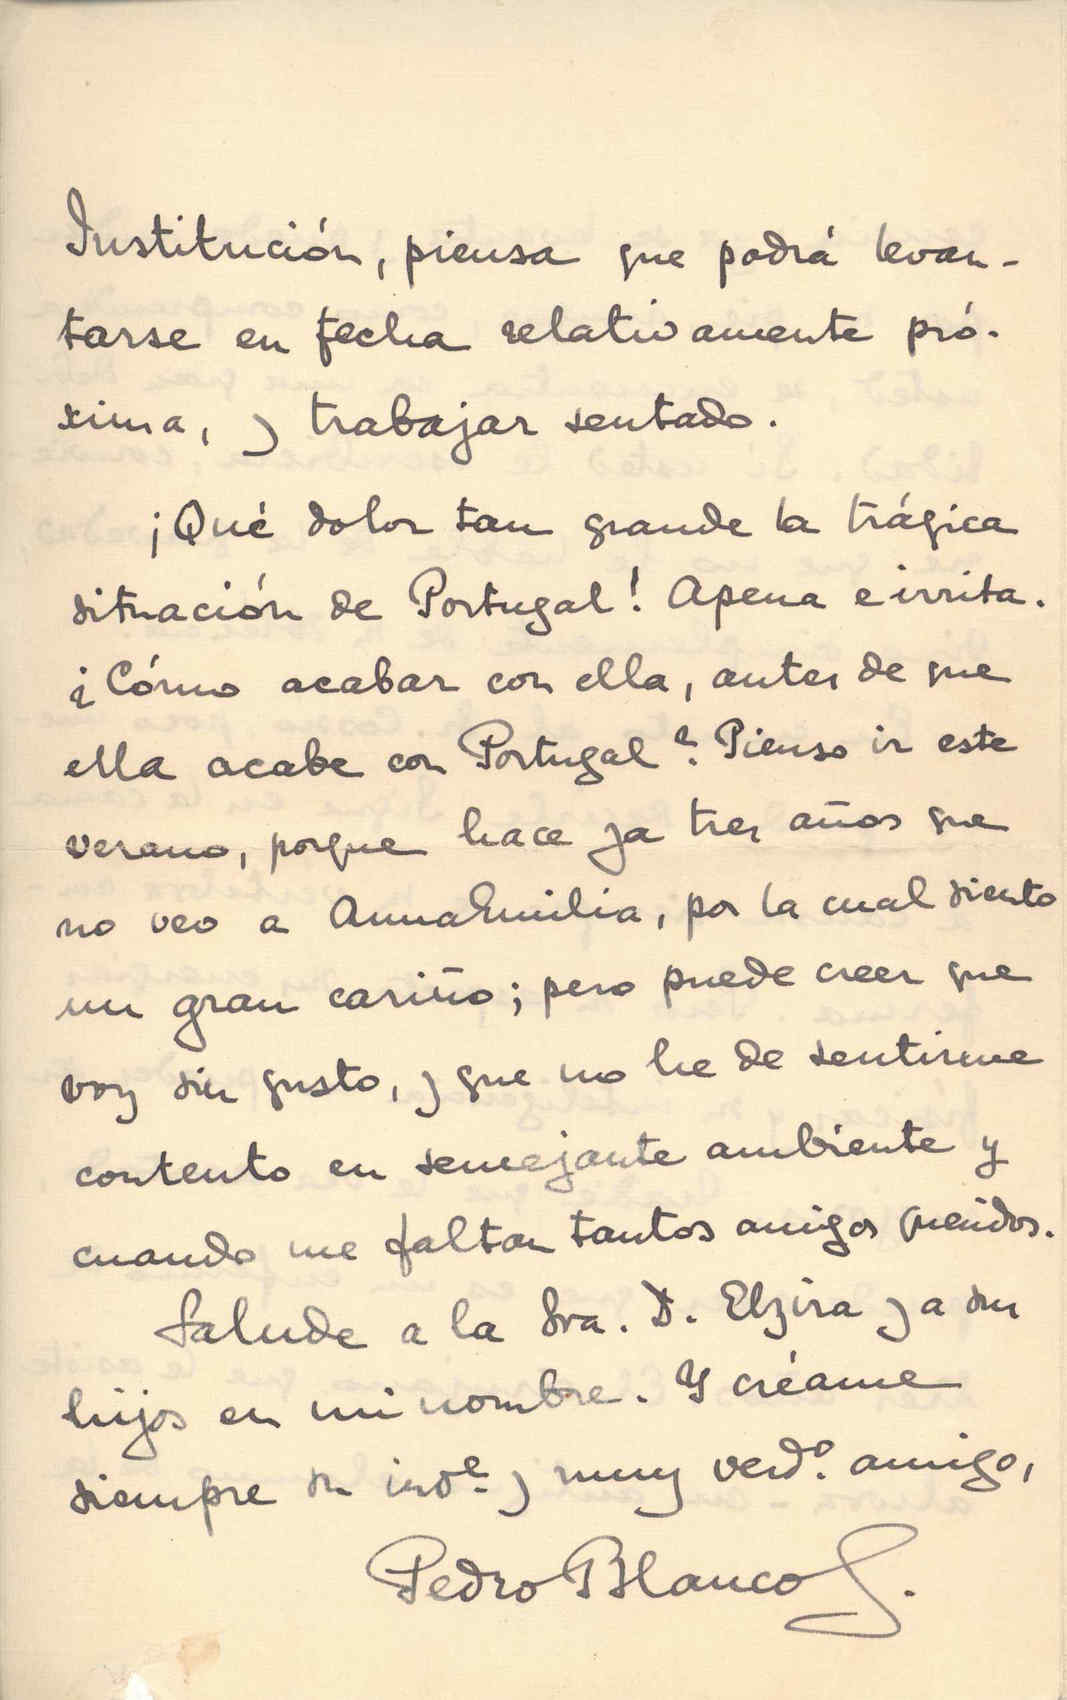 Institución, piensa que podrá levan-
tarse en fecha relativamente pró-
xima, y trabajar sentado.
¡Qué dolor tan grande la trágica
situación de Portugal! Apena e irrita.
¿Cómo acabar con ella, antes de que
ella acabe con Portugal? Pienso ir este
verano, porque hace ya tres años que
no veo a AnnaEmilia, por la cual siento
un gran cariño; pero puede creer que
voy sin gusto, y que no he de sentirme
contento en semejante ambiente y
cuando me faltan tantos amigos queridos.
Salude a la Sra. D. Elzira y a sus
hijos en mi nombre. Y créame
siempre su y muy verdº. amigo,
Pedro Blanco S.